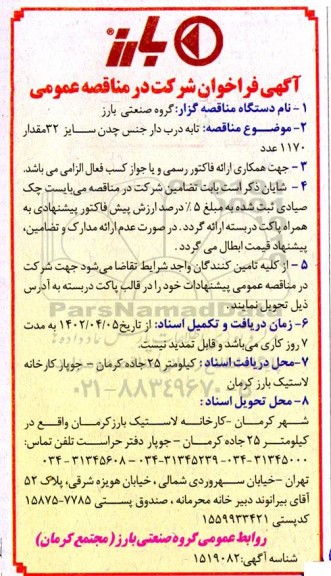 بارز
آگهی فراخوان شرکت در مناقصه عمومی
۱- نام دستگاه مناقصه گزار: گروه صنعتی بارز
۲- موضوع مناقصه: تابه درب دار جنس چدن سایز ۳۲ مقدار
۱۱۷۰ عدد
۳- جهت همکاری ارائه فاکتور رسمی و یا جواز کسب فعال الزامی می باشد.
۴- شایان ذکر است بابت تضامین شرکت در مناقصه می‌بایست چک
صیادی ثبت شده به مبلغ ۵٪ درصد ارزش پیش فاکتور پیشنهادی به
همراه پاکت دربسته ارائه گردد. در صورت عدم ارائه مدارک و تضامین،
پیشنهاد قیمت ابطال می گردد.
۵- از کلیه تامین کنندگان واجد شرایط تقاضا می‌شود جهت شرکت
در مناقصه عمومی پیشنهادات خود را در قالب پاکت دربسته به آدرس
ذیل تحویل نمایند.
ParsNamadData
۶- زمان دریافت و تکمیل اسناد: از تاریخ ۱۴۰۲/۰۴/۰۵ به مدت
۷ روز کاری می‌باشد و قابل تمدید نیست.
۷- محل دریافت اسناد: کیلومتر ۲۵ جاده کرمان - جوپار کارخانه
لاستیک بارز کرمان
۰۲۱-۸۸۳۴۹۶۷۰
۸- محل تحویل اسناد:
شهر کرمان - کارخانه لاستیک بارز کرمان واقع در
کیلومتر ۲۵ جاده کرمان - جوپار دفتر حراست تلفن تماس:
۰۳۴-۳۱۳۴۵۰۰۰ - ۰۳۴-۳۱۳۴۵۲۳۹ - ۰۳۴-۳۱۳۴۵۶۰۸
تهران - خیابان سهروردی شمالی، خیابان هویزه شرقی، پلاک ۵۲
آقای بیرانوند دبیر خانه محرمانه، صندوق پستی ۷۷۸۵-۱۵۸۷۵
کدپستی ۱۵۵۹۹۳۳۴۲۱
روابط عمومی گروه صنعتی بارز (مجتمع کرمان)
شناسه آگهی: ۱۵۱۹۰۸۲